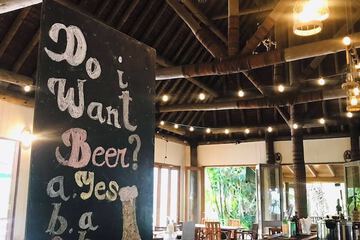 Do i
Want
Beer?
a. Yes
b. a